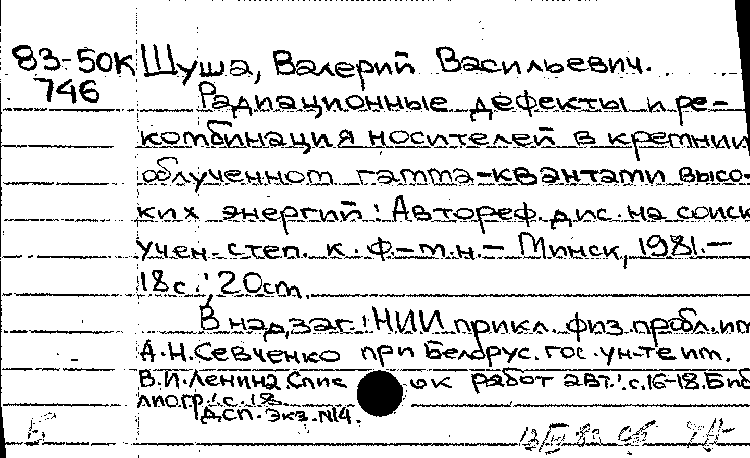 83-50К Шуша, Валерий Васильевич.
746 Радиационные дефекты и ре-
комбинация носителей в кремнии
облученном гамма-квантами высо-
ких энергий: Автореф. дис. на соиск
учен. степ. к. ф.-м.н. - Минск, 1981.-
18с.; 20см.
В надзаг.: НИИ прикл. физ. пробл. им
А.Н.Севченко при Белорус. гос. ун-те им.
В.И.Ленина. Список работ авт.: с.16-18. Биб
лиогр.: с.18.
ДСП. Экз. N14.
Б